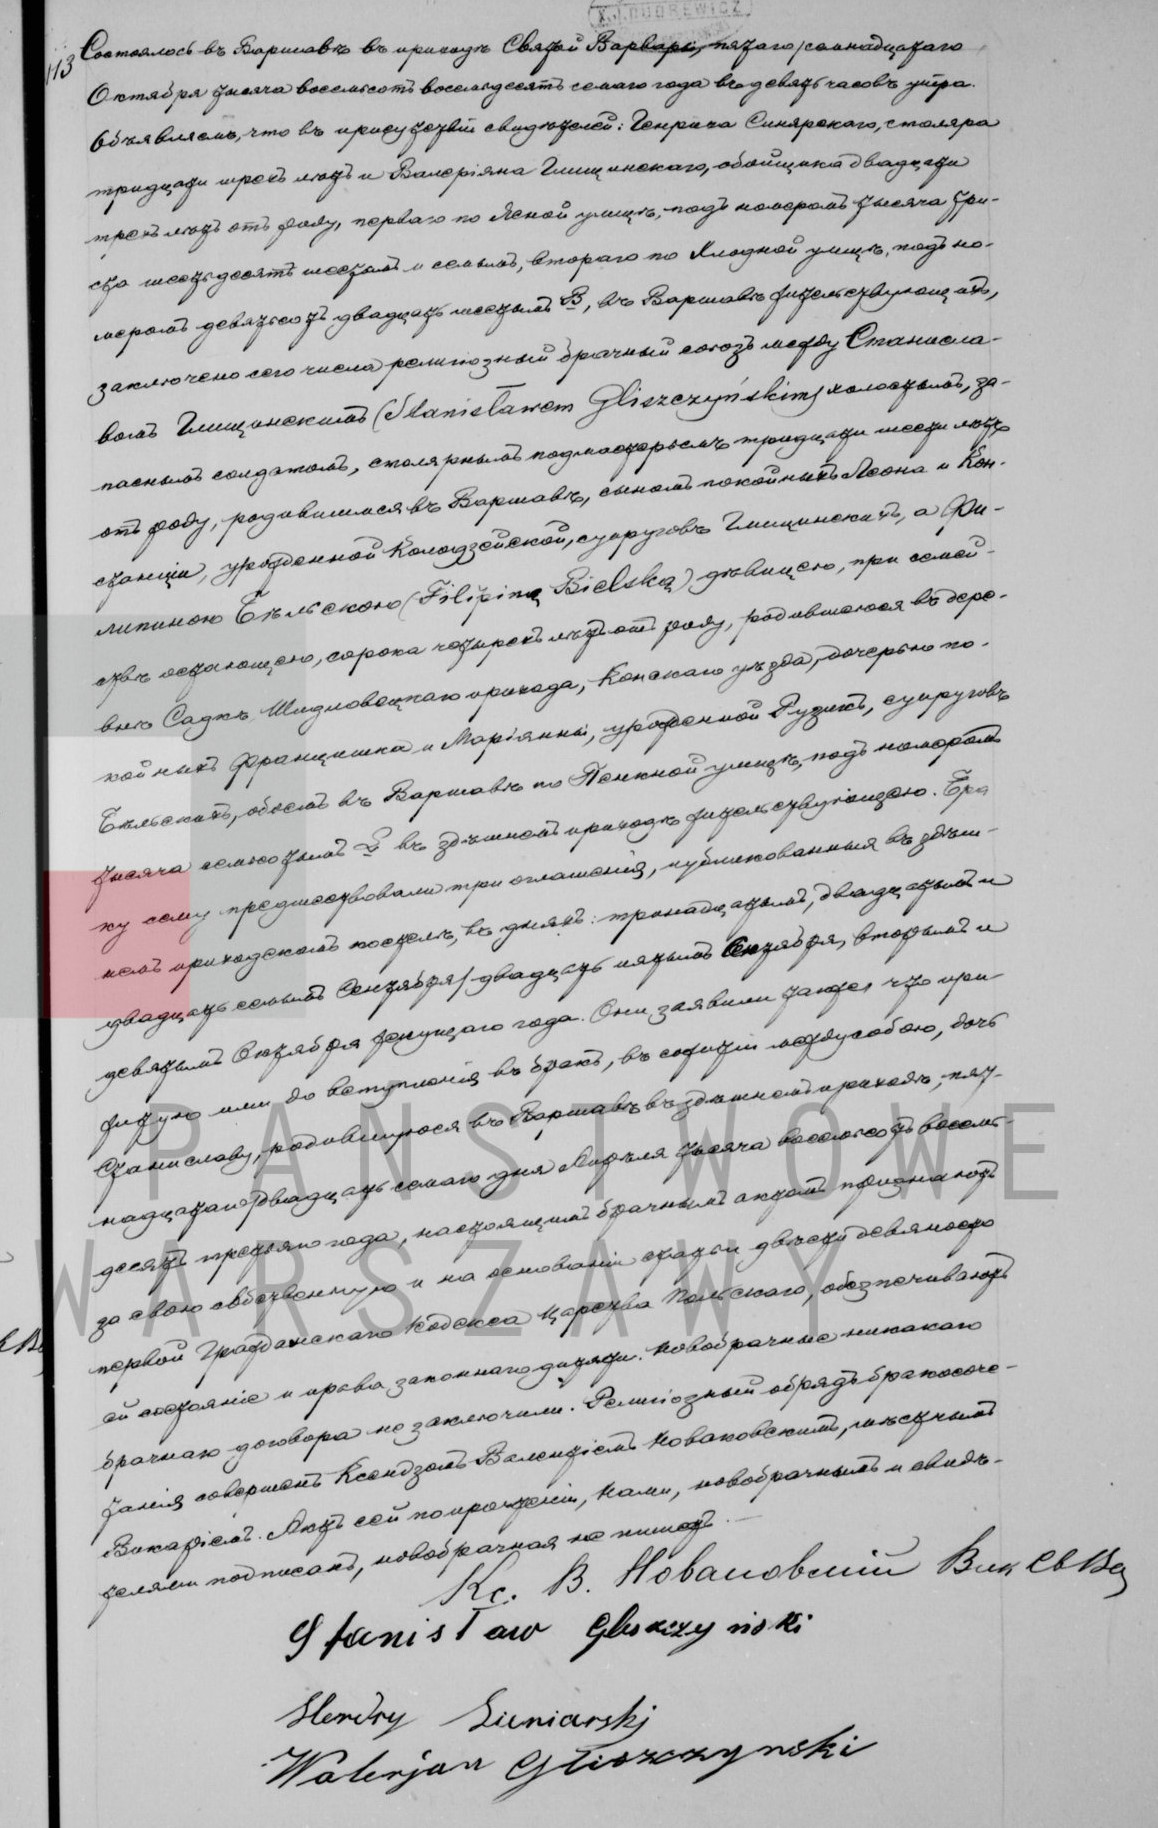 X. J. DUDREWICZ
113
Состоялось въ Варшавѣ въ приходѣ Святой Варвары, пятаго/семнадцатаго
Октября тысяча восемьсотъ восемьдесятъ седмаго года въ девять часовъ утра.
Объявляемъ, что въ присутствіи свидѣтелей: Генриха Синярскаго, столяра
тридцати трехъ лѣтъ и Валеріяна Глищинскаго, обойщика двадцати
трехъ лѣтъ отъ роду, перваго по Ясной улицѣ, подъ номеромъ тысяча три-
ста шестьдесятъ шестымъ и семымъ, втораго по Хлодной улицѣ, подъ но-
меромъ девятьсотъ двадцать шестымъ В, въ Варшавѣ жительствующихъ,
заключено сего числа религіозный брачный союзъ между Станисла-
вомъ Глищинскимъ (Stanisławem Gliszczyńskim) холостымъ, за-
паснымъ солдатомъ, столярнымъ подмастерьемъ тридцати шести лѣтъ
отъ роду, родившимся въ Варшавѣ, сыномъ покойныхъ Леона и Кон-
станціи, урожденной Колодзейской, супруговъ Глищинскихъ, а Фи-
липиною Бѣльскою (Filipiną Bielską) дѣвицею, при семей-
ствѣ остающею, сорока четырехъ лѣтъ отъ роду, родившеюся въ дере-
внѣ Садкъ Шидловецкаго прихода, Конскаго уѣзда, дочерью по-
койныхъ Францишка и Маріянны, урожденной Рузикъ, супруговъ
Бѣльскихъ, обоемъ въ Варшавѣ по Пенкной улицѣ, подъ номеромъ
тысяча семьсотымъ въ здѣшнемъ приходѣ жительствующею. Бра
ку сему предшествовали три оглашенія, публикованныя въ здѣш-
немъ приходскомъ костелѣ, въ дняхъ: тринадцатымъ, двадцатымъ и
двадцать седьмымъ Сентября/двадцать пятымъ Сентября, вторымъ и
девятымъ Октября текущаго года. Они заявили также что при-
житую ими до вступленія въ бракъ, въ сожитіи между собою, дочь
Станиславу, родившуюся въ Варшавѣ въ здѣшнемъ приходѣ, пят-
надцатаго/двадцать седмаго дня Апрѣля тысяча восемьсотъ восемь-
десятъ третьяго года, настоящимъ брачнымъ актомъ признаютъ
за свою собственную и на основаніи статьи двѣсти девяносто
первой Гражданскаго Кодекса Царства Польскаго, обезпечиваютъ
ей состояніе и права законнаго дитяти. Новобрачные никакого
брачнаго договора не заключили. Религіозный обрядъ бракосоче-
танія совершенъ Ксендзомъ Валентіемъ Новаковскимъ, мѣстнымъ
Викаріемъ. Актъ сей по прочтеніи, Нами, новобрачнымъ и свидѣ-
телями подписанъ, новобрачная не пишетъ.
Кс. В. Новаковскій Вик Св Ва
Stanisław Gliszczyński
Hendry Siniarski
Waleryan Gliszczynski
PAŃSTWOWE
WARSZAWY